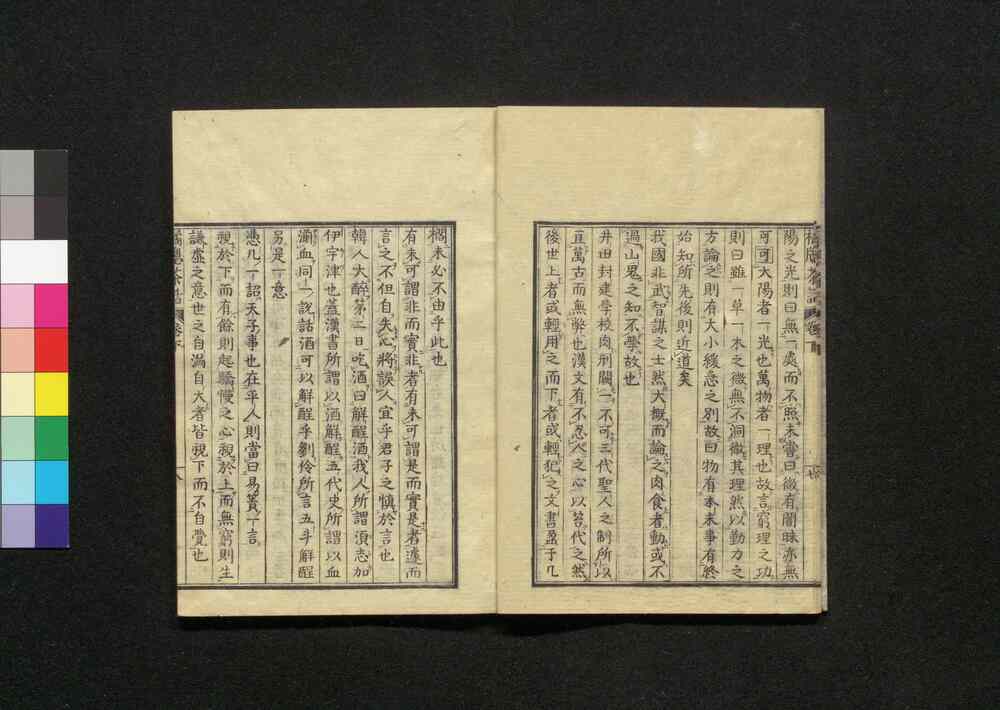 陽之光則曰無一處而不照未嘗曰微有闇昧亦無
可可大陽者一光也萬物者一理也故言窮理之功
則曰雖一草一木之微無不洞徹其理然以勤力之
方論之則有大小緩急之別故曰物有本末事有終
始知所先後則近道矣
我國非武智謀之士然大概而論之肉食者動或不
過山鬼之知不學故也
井田封建學校肉刑闕一不可三代聖人之制所以
亘萬古而無弊也漢文有不忍人之心以笞代之然
後世上者或輕用之而下者或輕犯之文書盈于几
橘窓茶話 卷下
閣未必不由乎此也
有未可謂非而實非者有未可謂是而實是者遽而
言之不但自失必將誤人宜乎君子之慎於言也
韓人大醉第二日吃酒曰解醒酒我人所謂須志加
伊宇津也蓋漢書所謂以酒解醒五代史所謂以血
濺血同一說話酒可以解醒乎劉伶所言五斗解醒
另是一意
憑几一詔天子事也在乎人則當曰易簀一言
視於下而有餘則起驕慢之心視於上而無窮則生
謙虛之意世之自滿自大者皆視下而不自覺也
橘窓茶話 卷下